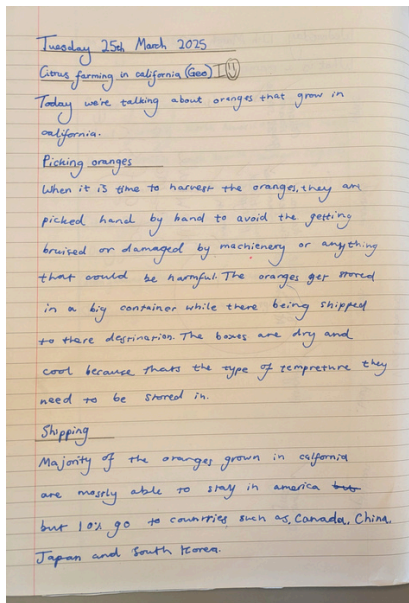 Tuesday 25th March 2025
Citrus farming in california (Geo) I
Today we're talking about oranges that grow in
california.
Picking oranges
When it is time to harvest the oranges, they are
picked hand by hand to avoid the getting
bruised or damaged by machienery or anything
that could be harmful. The oranges get stored
in a big container while there being shipped
to there destination. The boxes are dry and
cool because thats the type of tempreture they
need to be stored in.
Shipping
Majority of the oranges grown in calfornia
are mostly able to stay in america but
but 10% go to countries such as, Canada, China,
Japan and South Korea.